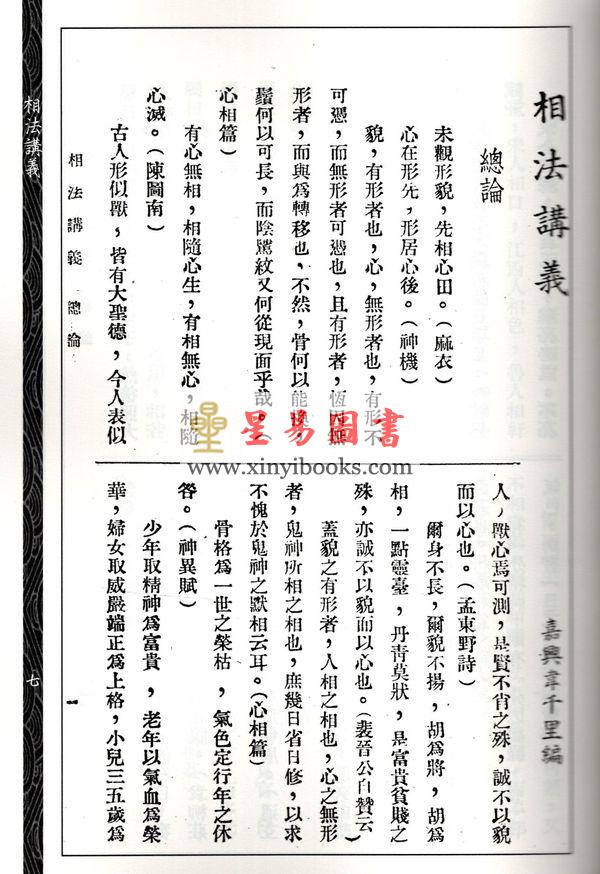 相法講義
嘉興韋千里編
總論
未觀形貌，先相心田。（麻衣）
心在形先，形居心後。（神機）
貌，有形者也，心，無形者也，有形不
可憑，而無形者可憑也，且有形者，恆因無
形者，而與爲轉移也，不然，骨何以能換，
鬚何以可長，而陰騭紋又何從現面乎哉。（
心相篇）
有心無相，相隨心生，有相無心，相隨
心滅。（陳圖南）
古人形似獸，皆有大聖德，今人表似
人，獸心焉可測，是賢不肖之殊，誠不以貌
而以心也。（孟東野詩）
爾身不長，爾貌不揚，胡爲將，胡爲
相，一點靈臺，丹靑莫狀，是富貴貧賤之
殊，亦誠不以貌而以心也。（裴晉公自贊云）
蓋貌之有形者，人相之相也，心之無形
者，鬼神所相之相也，庶幾日省日修，以求
不愧於鬼神之默相云耳。（心相篇）
骨格爲一世之榮枯，氣色定行年之休
咎。（神異賦）
少年取精神爲富貴，老年以氣血爲榮
華，婦女取威嚴端正爲上格，小兒三五歲爲
相法講義 總論
相法講義
七
一
星易圖書
www.xinyibooks.com